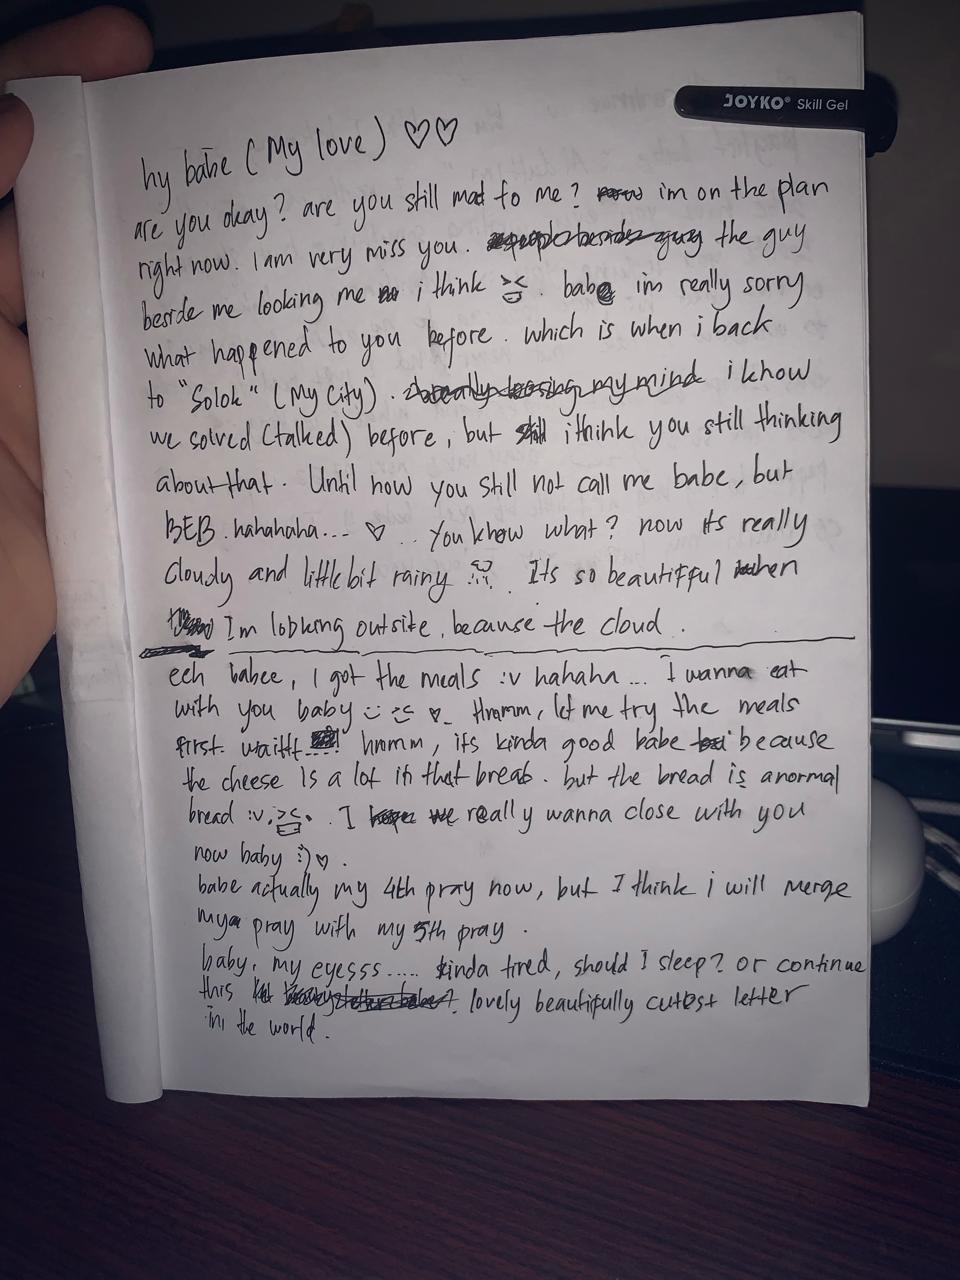 JOYKO® Skill Gel
hy babe (My love) ♡♡
are you okay? are you still mad to me? im on the plan
right now. I am very miss you. the guy
beside me looking me i think >< . babe im really sorry
what happened to you before. which is when i back
to "Solok" (My City). i know
we solved (talked) before, but i think you still thinking
about that. Until now you still not call me babe, but
BEB. hahahaha... ♡ .. You know what? now its really
cloudy and little bit rainy . Its so beautifful when
Im lobking outsite, because the cloud.
eeh babee, I got the meals :v hahaha... I wanna eat
with you baby ♡. Hmmm, let me try the meals
first. waittt...! hmmm, its kinda good babe because
the cheese is a lot in that breab. but the bread is a normal
bread :v, ><. . I really wanna close with you
now baby :) ♡ .
babe actually my 4th pray now, but I think i will merge
my pray with my 5th pray .
baby, my eyesss..... kinda tired, should I sleep? or continue
this lovely beautifully cutest letter
in the world.